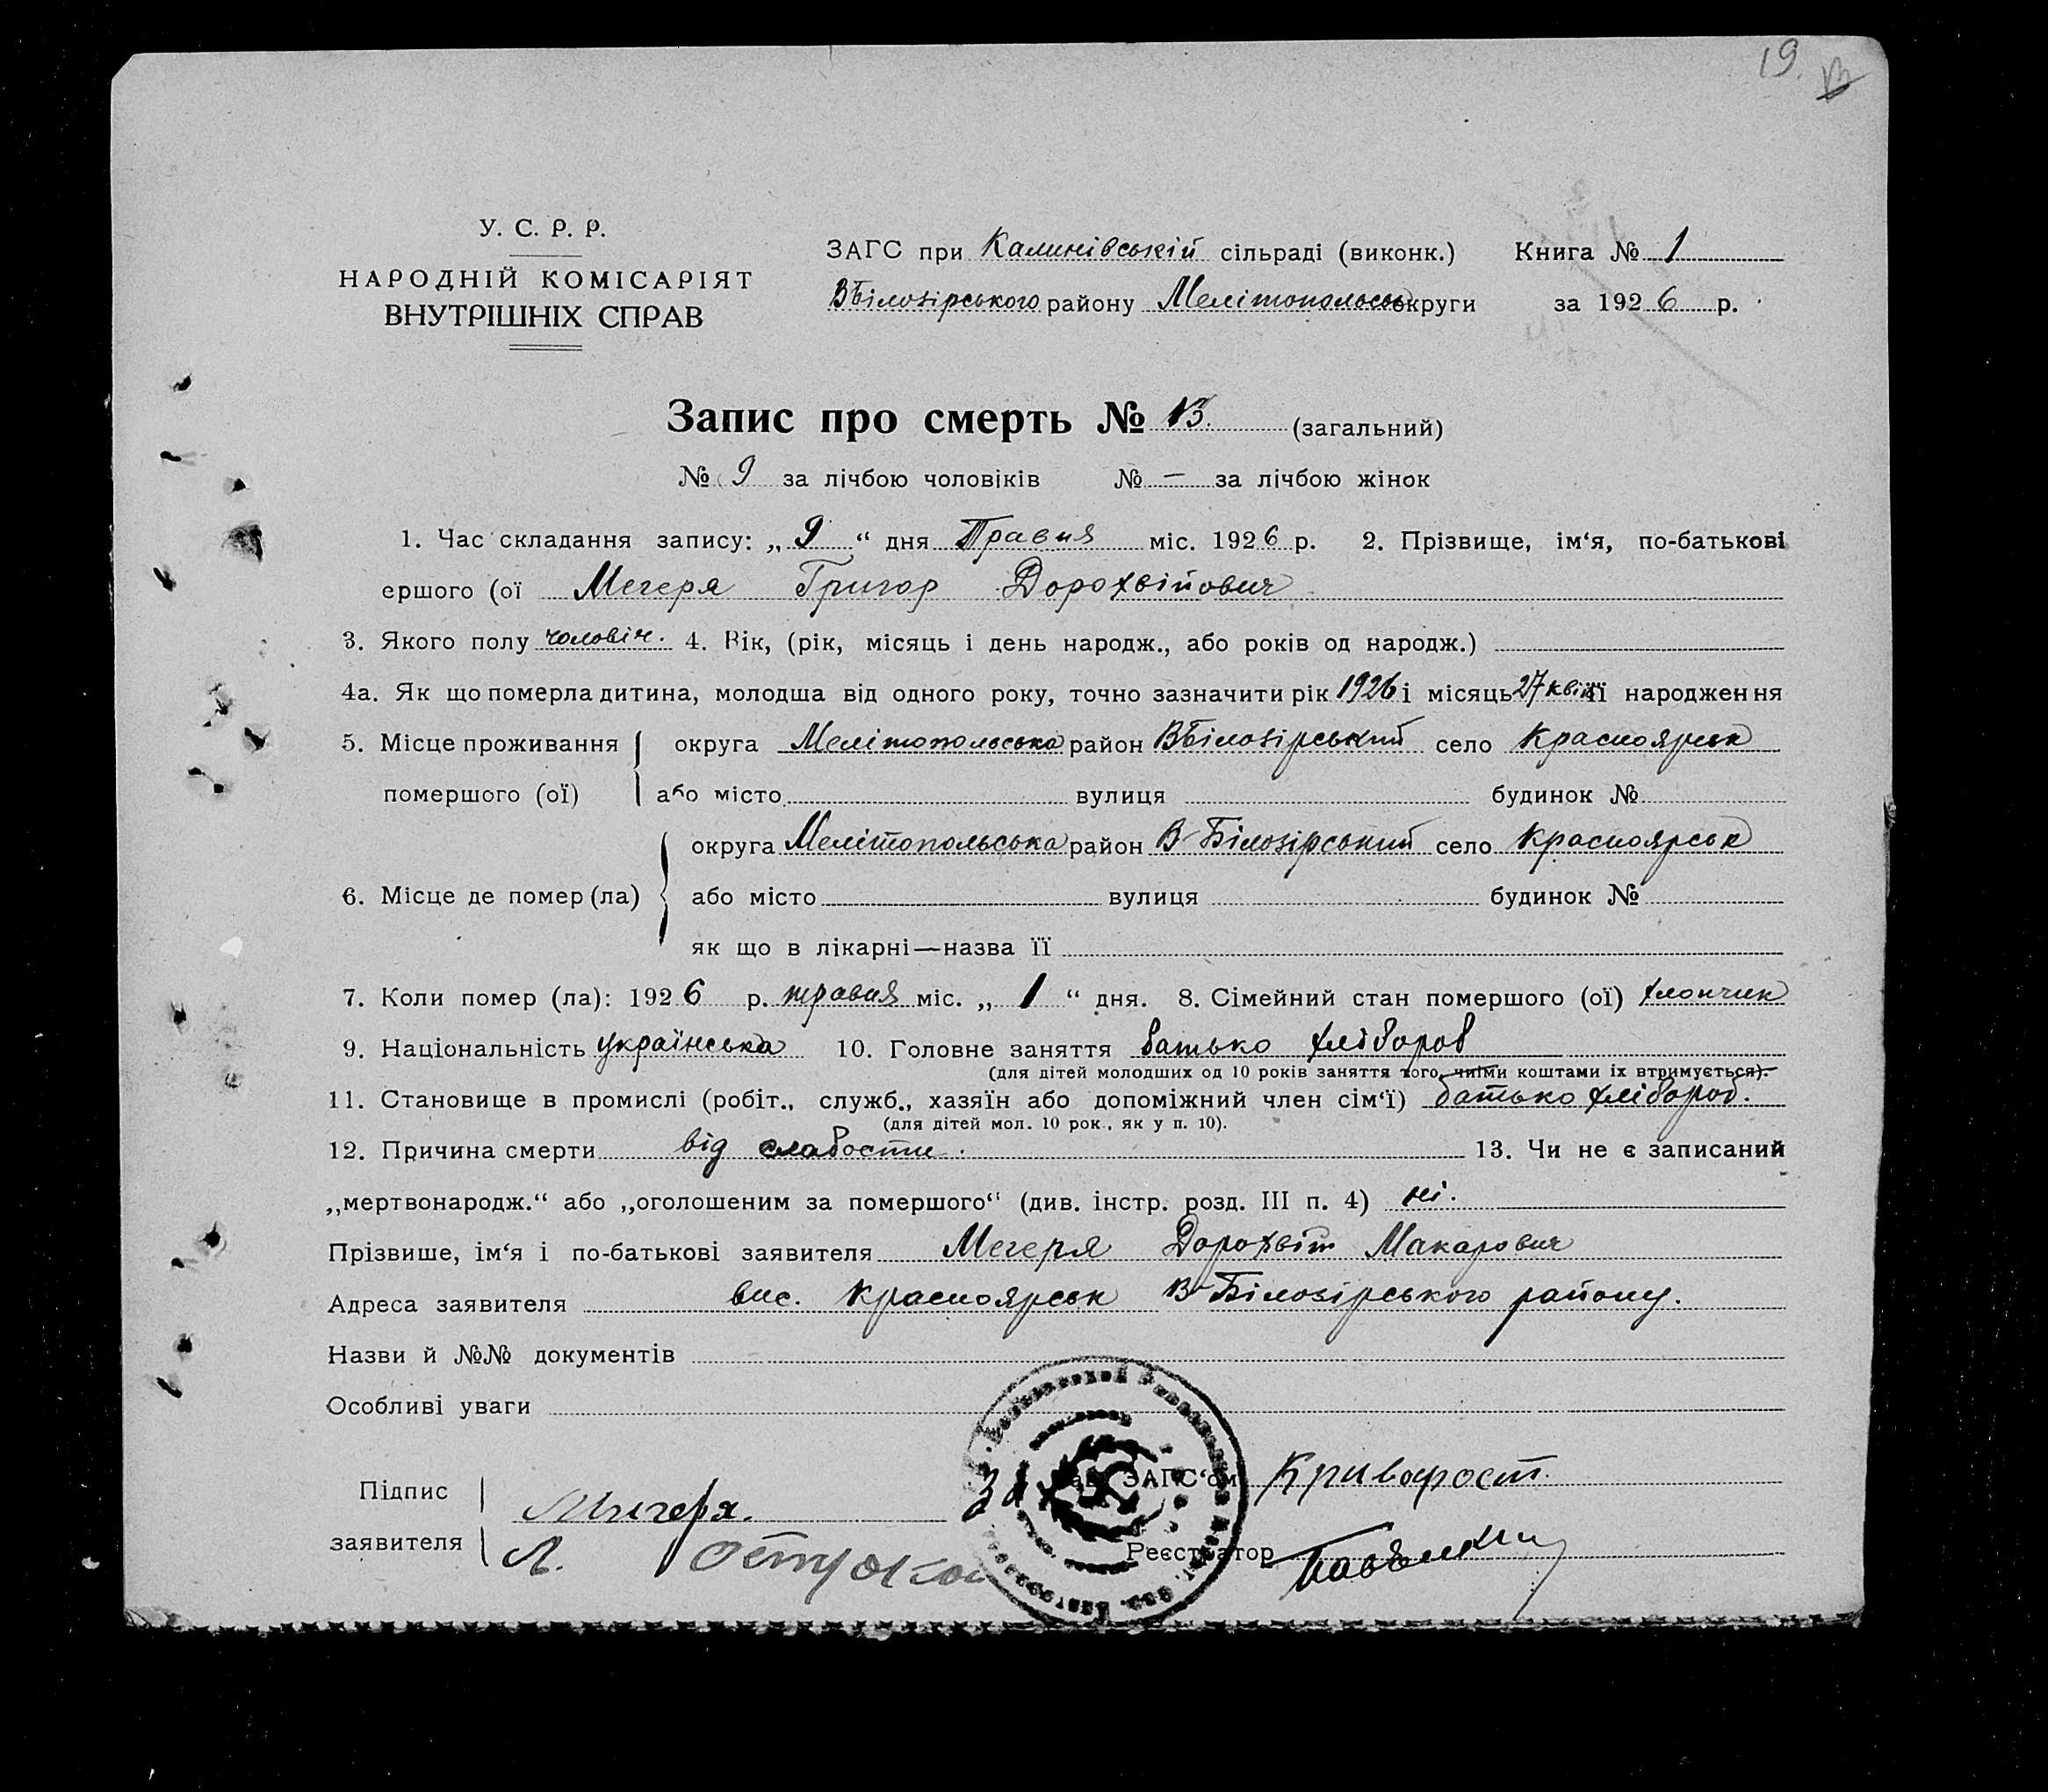 19.
У. С. Р. Р.
НАРОДНІЙ КОМІСАРІЯТ
ВНУТРІШНІХ СПРАВ
ЗАГС при Калинівській сільраді (виконк.) Книга № 1
ВБілозірського району Мелітопольсь округи за 1926 р.
Запис про смерть № 13. (загальний)
№ 9 за лічбою чоловіків № — за лічбою жінок
1. Час складання запису: „ 9 “ дня Травня міс. 1926 р. 2. Прізвище, ім‘я, по-батькові
ершого (ої Мегеря Григор Дорохвійович
3. Якого полу чоловіч. 4. Вік, (рік, місяць і день народж., або років од народж.)
4а. Як що померла дитина, молодша від одного року, точно зазначити рік 1926 і місяць 27 квіт її народження
5. Місце проживання округа Мелітопольська район ВБілозірський село Красноярськ
помершого (ої) або місто вулиця будинок №
округа Мелітопольська район В-Білозірський село Красноярськ
6. Місце де помер (ла) або місто вулиця будинок №
як що в лікарні—назва її
7. Коли помер (ла): 1926 р. травня міс. „ 1 “ дня. 8. Сімейний стан помершого (ої) хлопчик
9. Національність українська 10. Головне заняття батько хлібороб
(для дітей молодших од 10 років заняття того, чиїми коштами їх втримується).
11. Становище в промислі (робіт., служб., хазяїн або допоміжний член сім‘ї) батько хлібороб.
(для дітей мол. 10 рок., як у п. 10).
12. Причина смерти від слабости. 13. Чи не є записаний
„мертвонародж.“ або „оголошеним за помершого“ (див. інстр. розд. III п. 4) ні.
Прізвище, ім‘я і по-батькові заявителя Мегеря Дорохвій Макарович
Адреса заявителя вис. Красноярськ В-Білозірського району.
Назви й №№ документів
Особливі уваги
Підпис Мигеря. За ЗАГС‘ом Криворост.
заявителя Л. Реєстратор